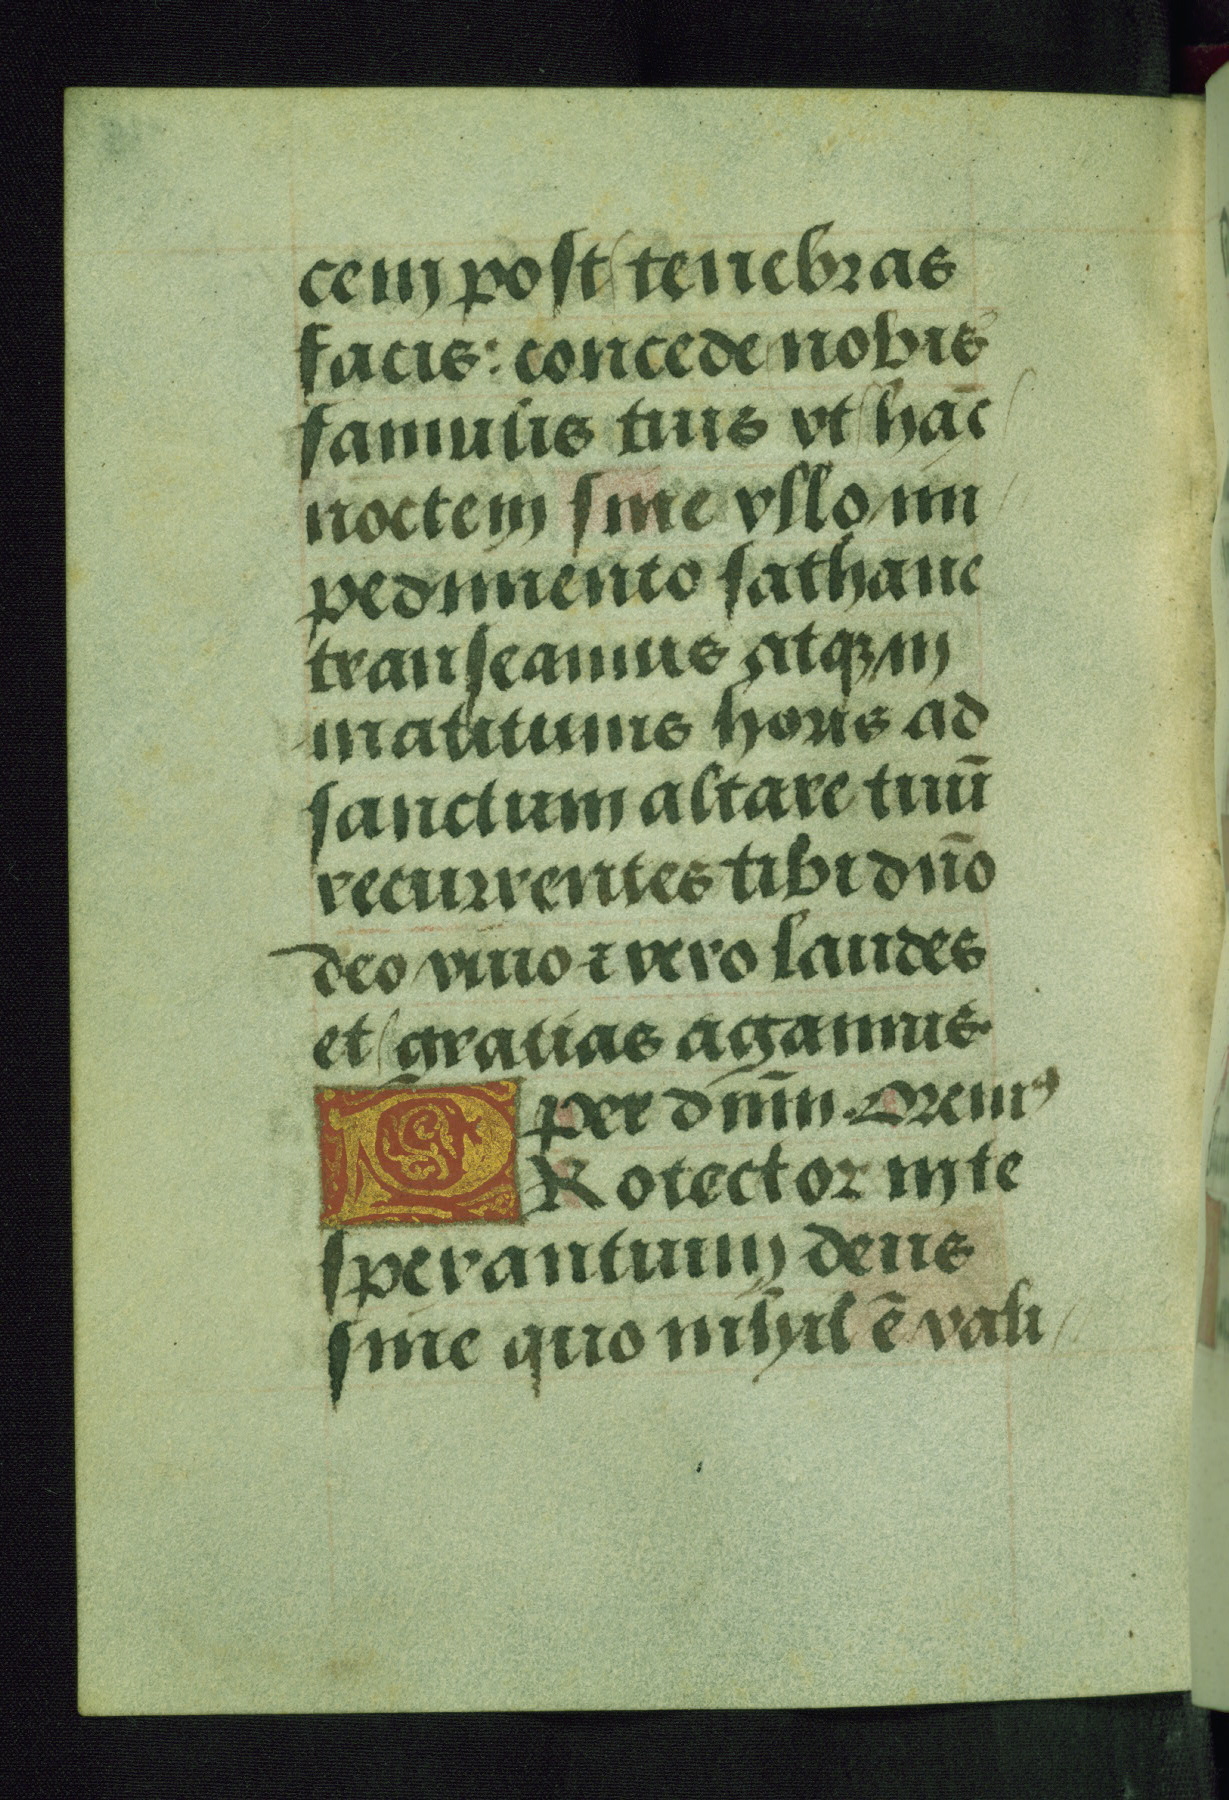 cem post tenebras
facis: concede nobis
famulis tuis vt hāc
noctem sine vllo im
pedimento sathane
transeamus atqꝫ in
matutinis horis ad
sanctum altare tuū
recurrentes tibi dn̄o
deo viuo ⁊ vero laudes
et gratias agamus.
per dn̄m. Oremꝰ
PRotector in te
sperantium deus
sine quo nihil ē vali